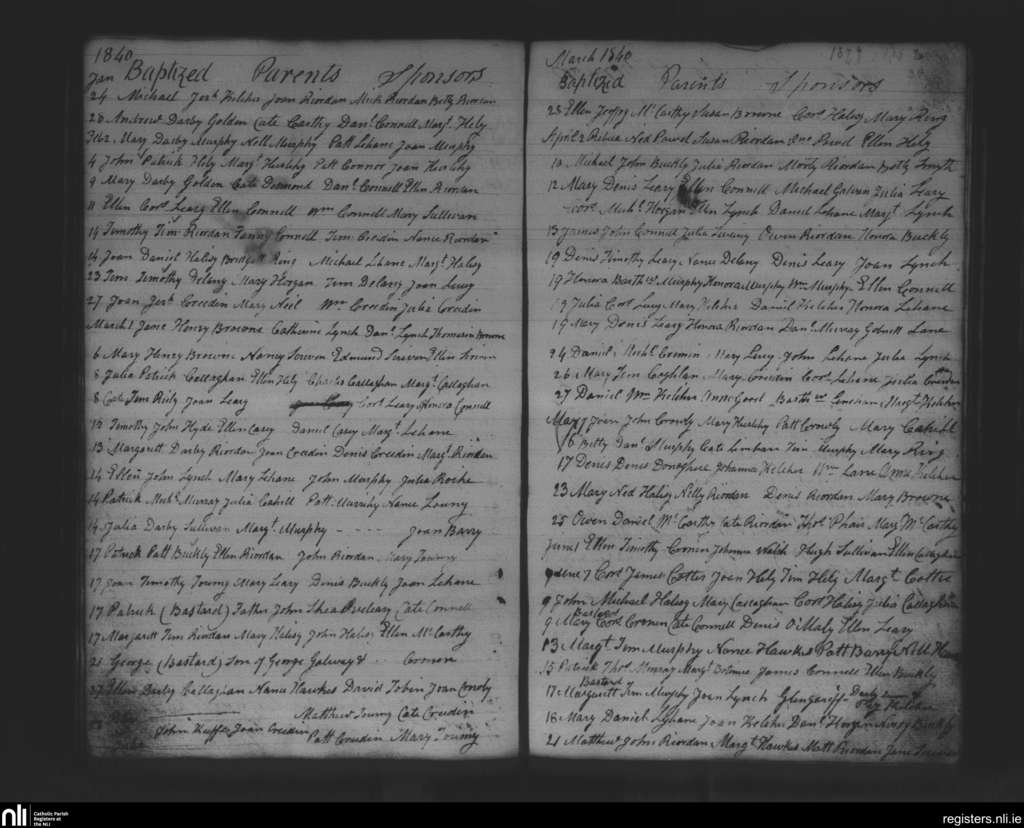 1840
Jan Baptized Parents Sponsors
24 Michael Jerh Kelcher Joan Riordan Mick Riordan Betty Riordan
28 Andrew Darby Golden Cate Carthy Danl Connell Margt Hely
Feb 2 Mary Darby Murphy Nell Murphy Patt Lehane Joan Murphy
4 John Patrick Hely Margt Hurlehy Patt Connor Joan Hurlehy
9 Mary Darby Golden Cate Desmond Danl Connell Ellen Riordan
11 Ellen Cors Leary Ellen Connell Wm Connell Mary Sullivan
14 Timothy Tim Riordan Connell Tim Creedin Nance Riordan
14 Joan Daniel Halisy Bridgett Michael Lehane Margt Halisy
23 Tim Timothy Delany Mary Horgan Tim Delany Joan Lucy
27 Joan Jerh Creedin Mary Neil Wm Creedin Julia Creedin
March 1 Jane Henry Browne Catherine Lynch Danl Lynch Browne
6 Mary Henry Browne Nancy Edmund Ellen
8 Julia Patrick Callaghan Ellen Hely Charles Callaghan Margt Callaghan
8 Cate Tim Riely Joan Leary Cors Leary Honora Connell
12 Timothy John Hyde Ellen Casey Daniel Casey Margt Lehane
13 Margarett Darby Riordan Joan Creedin Denis Creedin Margt Riordan
14 Ellen John Lynch Mary Lehane John Murphy Julia Roche
14 Patrick Michl Murray Julia Cahill Patt Murphy Nance Young
14 Julia Darby Sullivan Margt Murphy - - - - Joan Barry
17 Patrick Patt Buckly Ellen Riordan John Riordan Mary Toumy
17 Joan Timothy Toumy Mary Leary Denis Buckly Joan Lehane
17 Patrick (Bastard) Father John Shea Cate Connell
17 Margarett Tim Riordan Mary Halisy John Halisy Ellen McCarthy
21 George (Bastard) Son of George Galwey & Connor
27 Ellen Darby Callaghan Nance Hawkes David Tobin Joan Crowly
Matthew Toumy Cate Creedin
John Keeffe Joan Creedin
Patt Creedin Mary Toumy
March 1840
Baptized Parents Sponsors
28 Ellen McCarthy Susan Browne Cors Halisy Mary Ring
April 2 Ned Susan Riordan Ellen Hely
10 Michael John Buckly Julia Riordan Morty Riordan Betty Smyth
12 Mary Denis Leary Ellen Connell Michael Galwin Julia Leary
Cors Michl Horgan Ellen Lynch Daniel Lehane Margt Lynch
13 James John Connell Julia Owen Riordan Honora Buckly
19 Denis Timothy Leary Nance Delany Denis Leary Joan Lynch
19 Honora Barthw Murphy Honora Murphy Wm Murphy Ellen Connell
19 Julia Cors Lucy Mary Kelcher Daniel Kelcher Honora Lehane
19 Mary Denis Leary Honora Riordan Danl Murray Lane
24 Daniel Cronin Mary Lucy John Lehane Julia Lynch
26 Mary Tim Coghlan Mary Creedin Cors Lehane Julia Creedin
27 Daniel Wm Kelcher Good Barthw Margt Kelcher
May 7 Joan John Crowly Mary Hurlehy Patt Crowly Mary Cahill
16 Betty Danl Murphy Cate Linehane Tim Murphy Mary Ring
17 Denis Denis Donoghue Johanna Kelcher Wm Lane Kelcher
23 Mary Ned Halisy Nelly Riordan Denis Riordan Mary Browne
25 Owen Daniel McCarthy Cate Riordan Thos Phair Mary McCarthy
June 1 Ellen Timothy Cronin Walsh Hugh Sullivan Ellen Callaghan
June 7 Cors James Cotter Joan Hely Tim Hely Margt Cotter
9 John Michael Halisy Mary Callaghan Cors Halisy Julia Callaghan
Bastard
9 Mary Cors Cronin Cate Connell Denis O'Maly Ellen Leary
13 Margt Tim Murphy Nance Hawkes Patt Barry Nell
15 Patrick Thos Murray Margt James Connell Ellen Buckly
Bastard of
17 Margarett Tim Murphy Joan Lynch Glengariff Darby Kelcher
18 Mary Daniel Lehane Joan Kelcher Danl Horgan Buckly
21 Matthew John Riordan Margt Hawkes Matt Riordan Jane
nli
Catholic Parish
Registers at
the NLI
registers.nli.ie